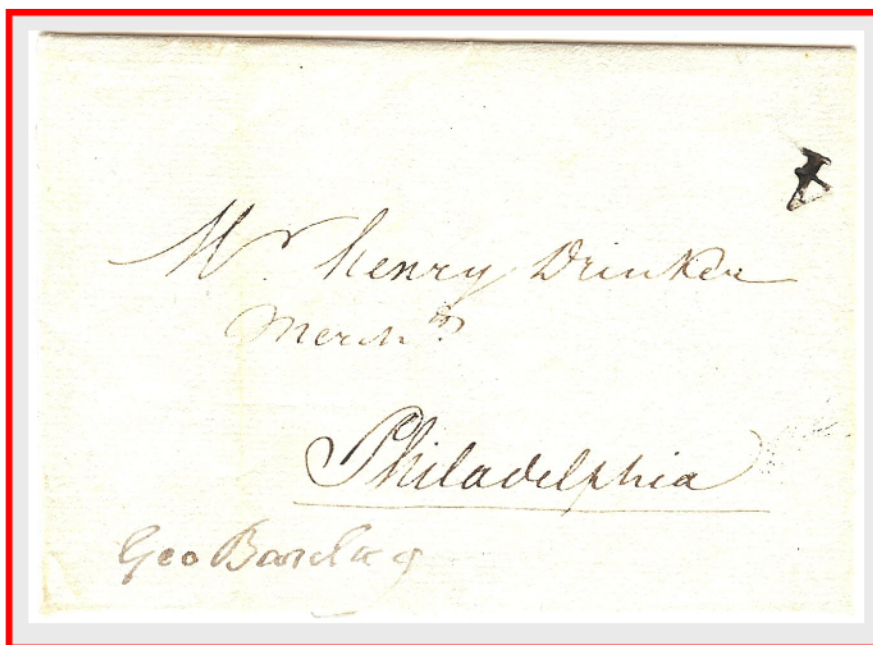 Mr. Henry Drinker
Mercht.
Philadelphia
Geo